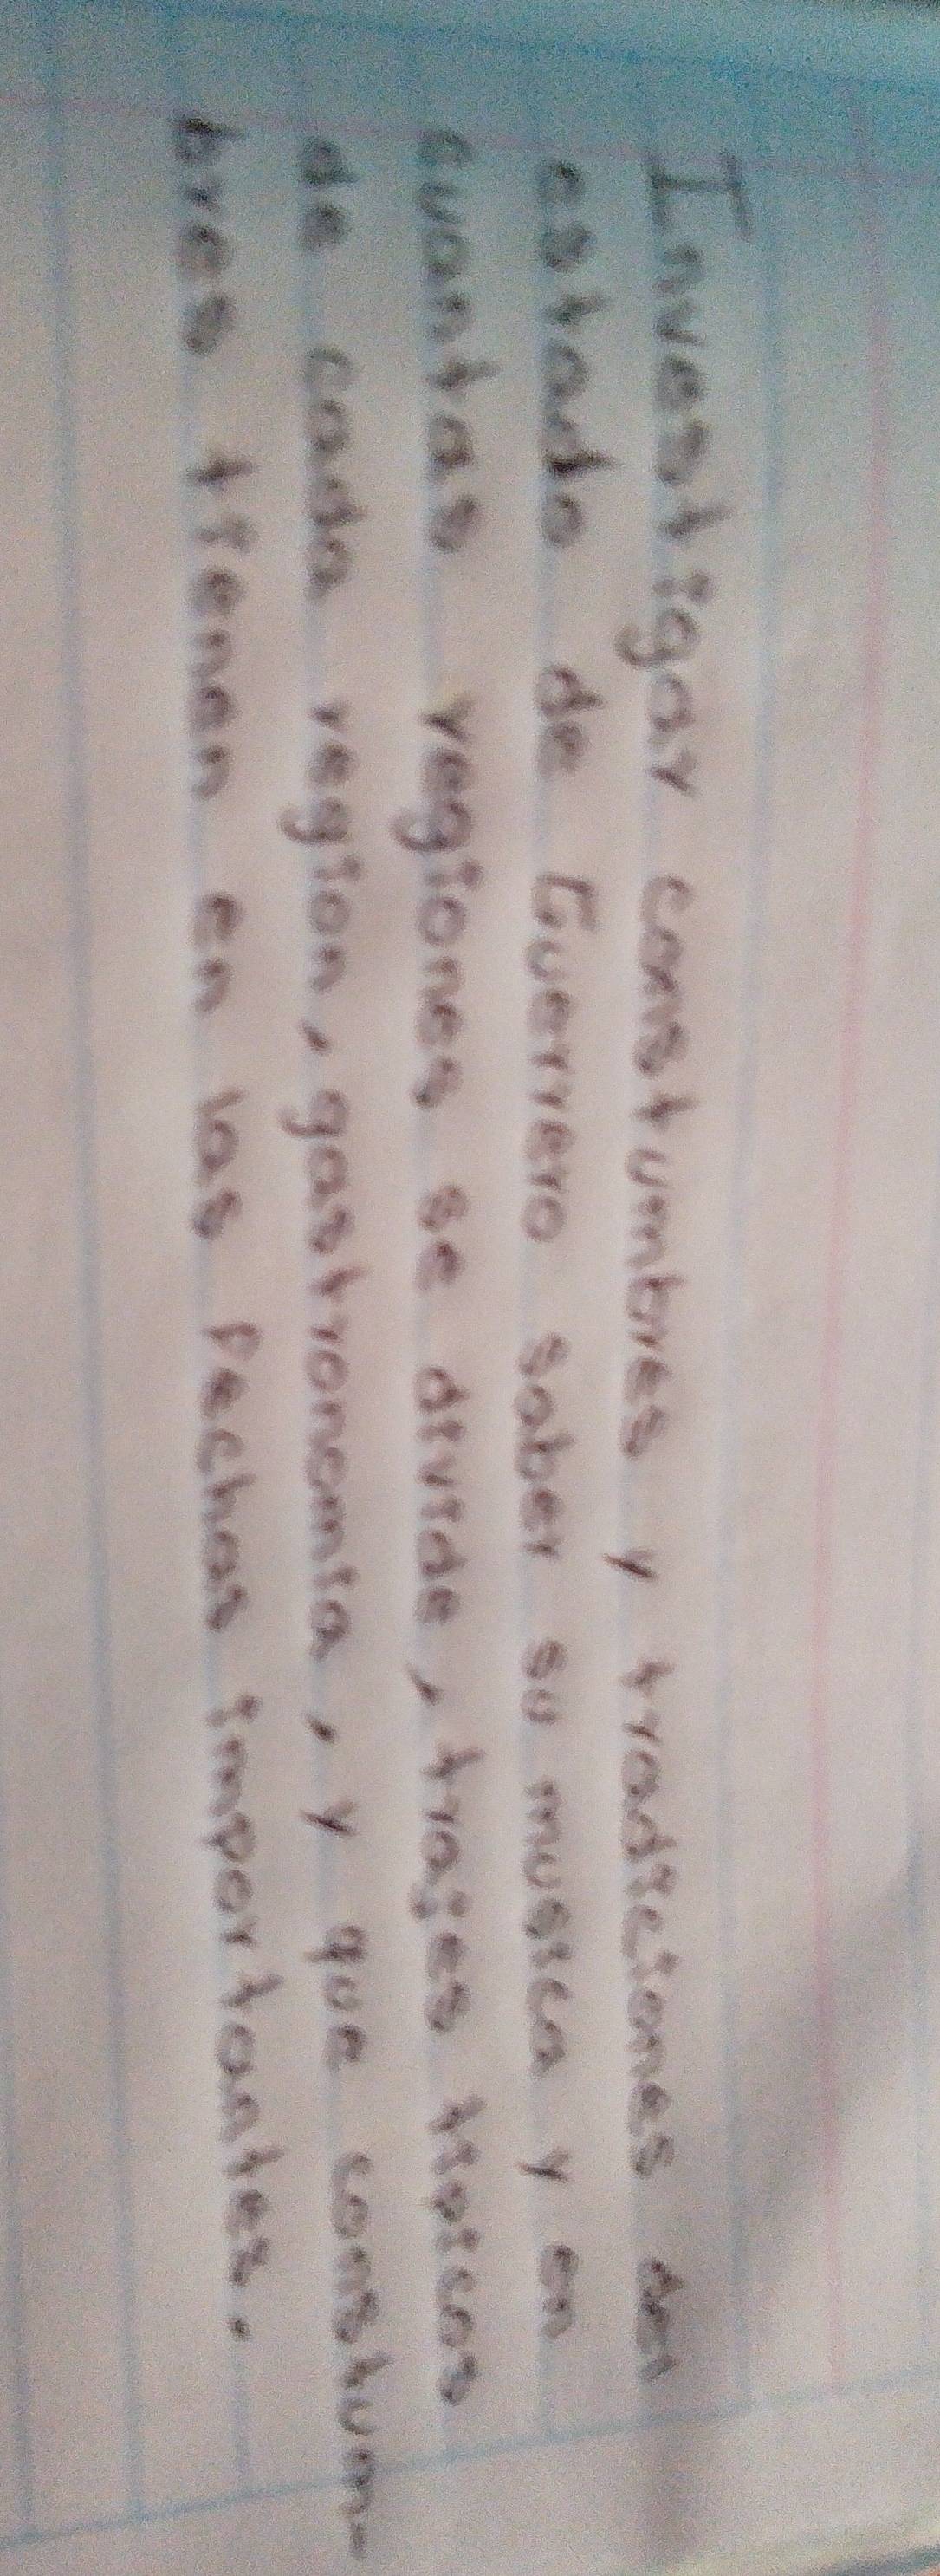 Investigar constumbres y tradiciones del
estado de Guerrero saber su musica y en
cuantas regiones se divide, trajes tipicos
de cada region, gastronomia, y que constum-
bres tienen en las fechas importantes.